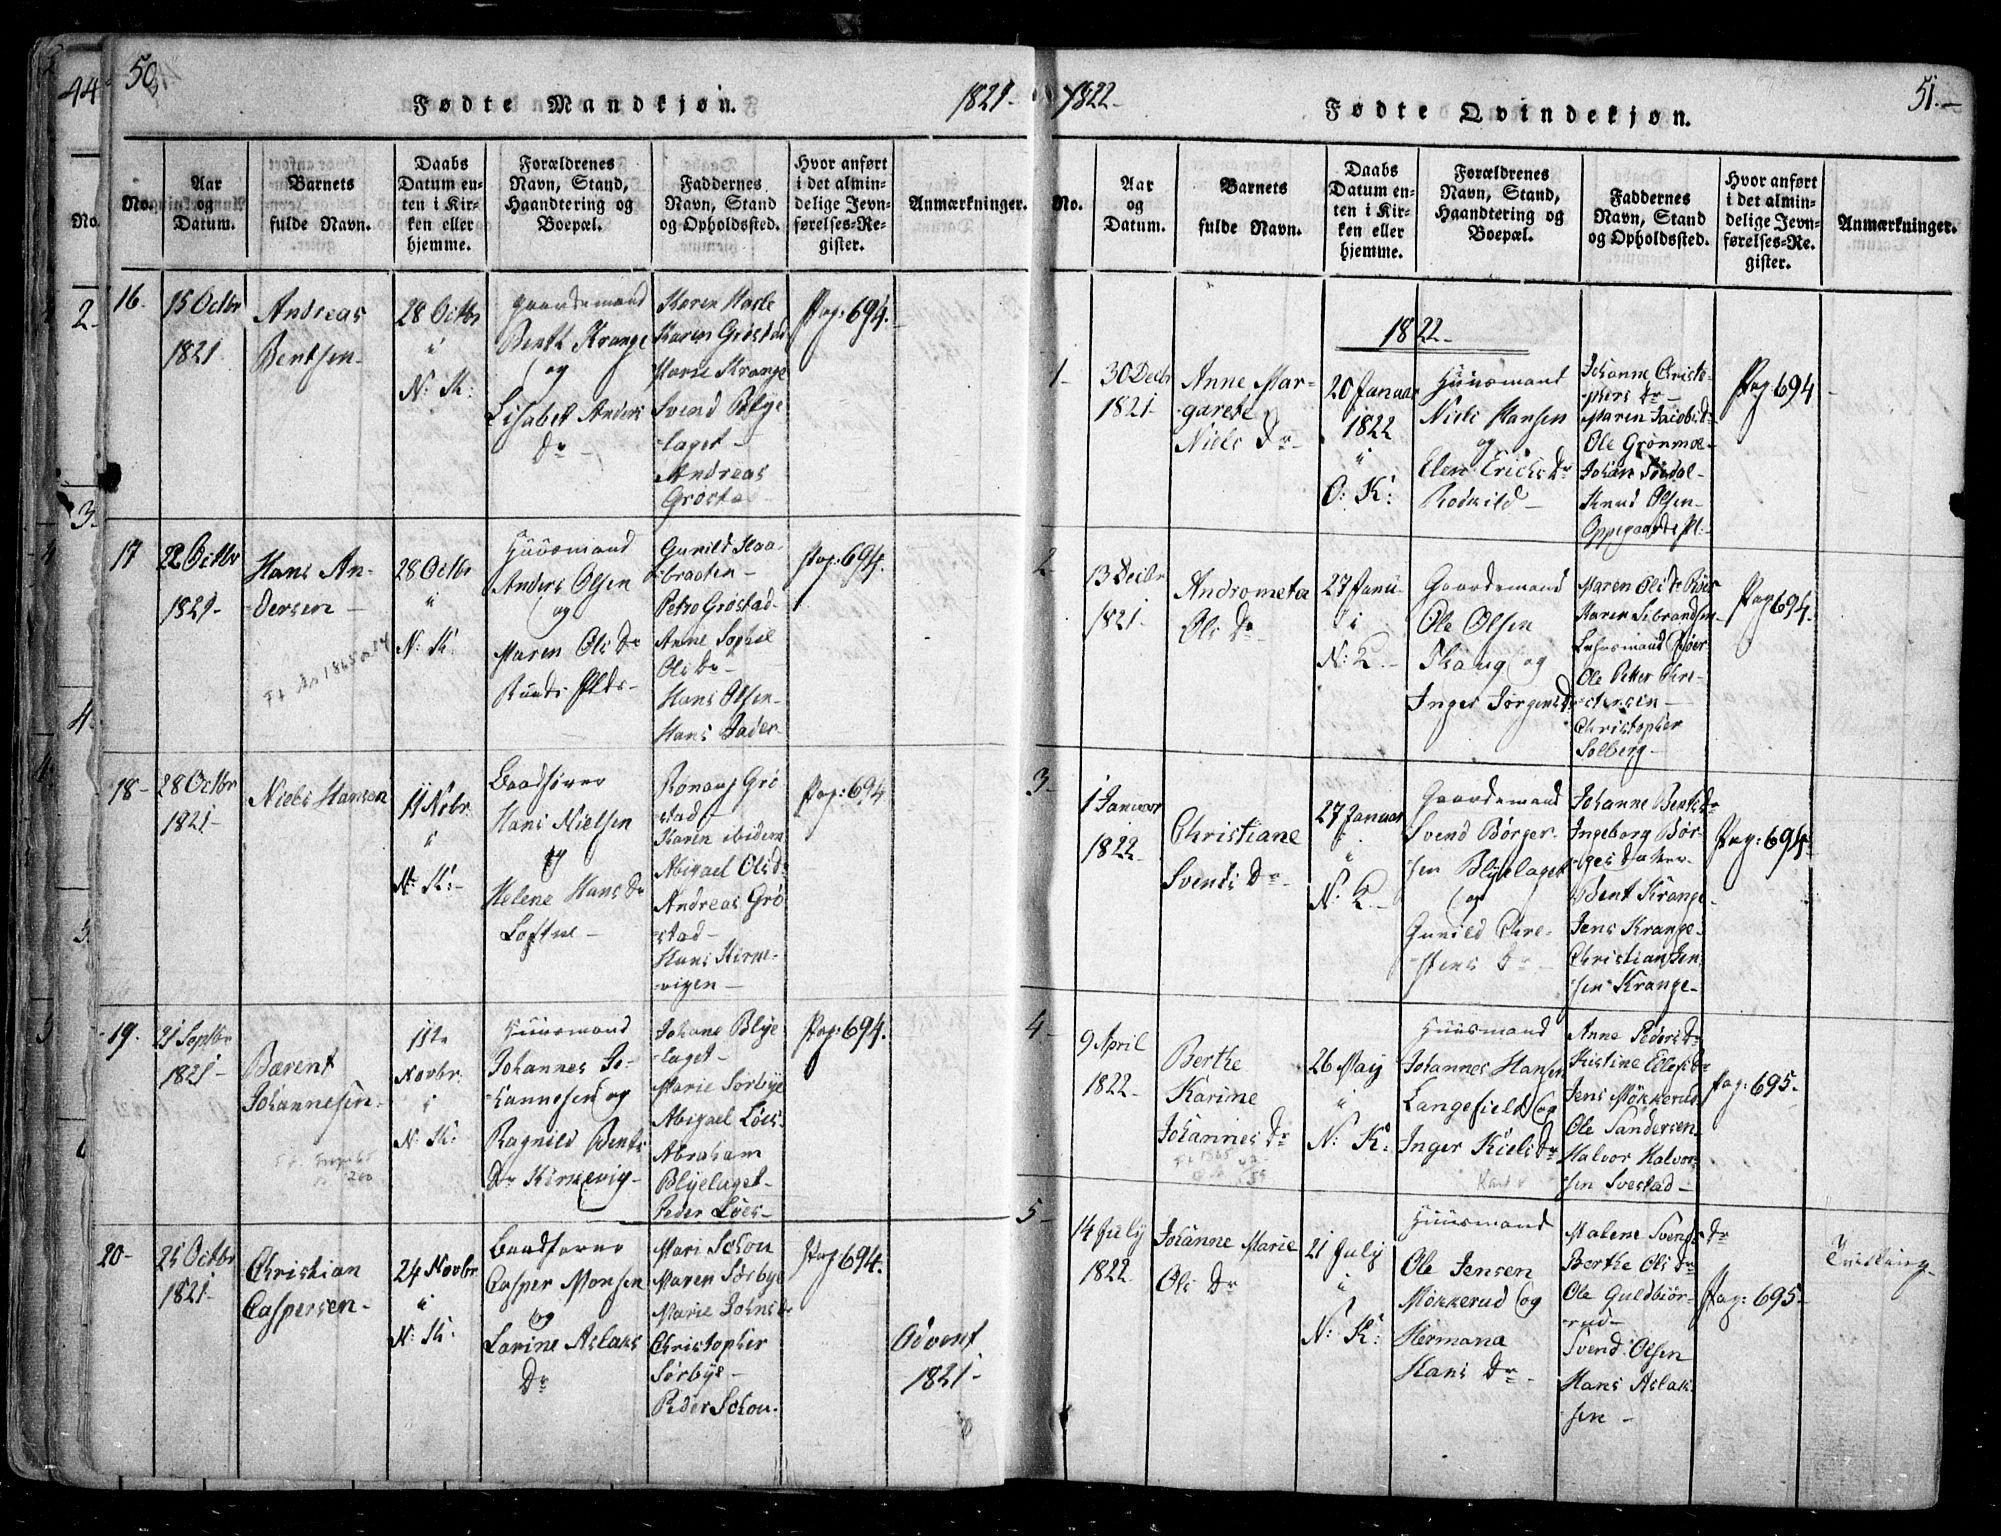 50
Fødte Mandkjøn.
1821-
No.
Aar
og
Datum.
Barnets
fulde Navn.
Daabs
Datum en-
ten i Kir-
ken eller
hjemme.
Forældrenes
Navn, Stand,
Haandtering og
Boepæl.
Faddernes
Navn, Stand
og Opholdssted.
Hvor anført
i det almin-
delige Jevn-
førelses-Re-
gister.
Anmærkninger.
16.
15 Octbr
1821
Andreas
Bentsen-
28 Octbr
"
N: K:
Gaardemand
Benth Krange
og
Lisabet Anders
Dr
Karen Hasle
Karen Grøstad
Marie Krange
Svend Blÿe
laget-
Andreas
Grøsta-
Pag: 694.
17
22 Octbr
1821-
Hans An-
dersen-
28 Octbr
"
N: K:
Huusmand
Anders Olsen
og
Maren Ols Dr
Ruuds Plds-
Gunild Haa-
braaten-
Petro Grøstad-
Anne Sophie
Ols Dr-
Hans Olsen-
Hans Jader-
Pag: 694.
18-
28 Octbr
1821-
Niels Hansen
11 Novbr.
"
N: K:-
Baadfører
Hans Nielsen
og
Helene Hans Dr
Loftne-
Grø
stad-
Karen ibidem
Abigael Ols dr
Andreas Grø
stad-
Hans Kirke-
vigen-
Pag: 694
19.
21 Septbr
1821-
Bærent
Johannesen-
11te
Novbr.
"
N: K:
Huusmand
Johannes Jo-
hannesen og
Ragnild Bents
Dr Kirkevig-
Johane Blÿe
laget-
Marie Sørbÿe
Abigael Løes-
Abraham
Blÿelaget-
Peder Løes-
Pag: 694.
20-
25 Octbr
1821-
Christian
Caspersen-
24 Novbr.
"
N: K:
Baadfører
Casper Monsen
og
Lovine Aslaks
Dr
Mari Schou
Maren Sørbÿe
Marie Johns dr
Christopher
Sørbÿe-
Peder Schou.
Pag: 694.
Advent
1821-
1822-
Fødte Qvindekjøn.
51.-
No.
Aar
og
Datum.
Barnets
fulde Navn.
Daabs
Datum en-
ten i Kir-
ken eller
hjemme.
Forældrenes
Navn, Stand,
Haandtering og
Boepæl.
Faddernes
Navn, Stand
og Opholdssted.
Hvor anført
i det almin-
delige Jevn-
førelses-Re-
gister.
Anmærkninger.
1822-
1-
30 Decbr
1821-
Anne Mar-
garete
Niels Dr
20 Januar
1822
"
O: K:
Huusmand
Niels Hansen
og
Elen Erichs Dr
Rodkild-
Johanne Christo-
phers Dr-
Maren Jacobs Dr
Ole Grønmoe-
Johan
Knud Olsen-
Oppegaards Pl:-
Pag: 694
2-
13 Decbr
1821-
Andrometa
Ols Dr
27 Janu-
"
N: K.-
Gaardemand
Ole Olsen
Skaug og
Inger Jørgens Dr
Maren Ols Dr Røer
Karen Sibrandsen
Lehnsmand Røer-
Ole Petter Chri-
stensen-
Christopher
Solberg-
Pag 694.
3-
1 Januar
1822-
Christiane
Svends Dr-
27 Januar
"
N: K.-
Gaardemand
Svend Børger-
sen Blÿelaget
og
Gunild Chri-
stens Dr-
Johanne Bents Dr
Ingeborg Bør-
ges datter-
Bent Krange-
Jens Krange-
Christian Jen-
sen Krange-
Pag: 694-
4-
9 April
1822-
Berthe
Karine
Johannes Dr
26 Maÿ
"
N: K:
Huusmand
Johannes Hansen
Langefield og
Inger Kiels Dr
Anne Peders Dr
Kistine Ellefs Dr
Jens Møkkerud
Ole Sandersen
Halvor Halvor-
sen Svestad-
Pag: 695-
5-
14 Julÿ
1822-
Johanne Marie
Ols Dr
21 Julÿ
"
N: K:
Huusmand
Ole Jensen
Møkkerud og
Hermana
Hans Dr-
Malene Svends Dr
Berthe Ols Dr
Ole Guldbiør-
rud-
Svend Olsen
Hans Aslak-
sen-
Pag: 695-
Tvilling-
44
No.
2-
3.
4.